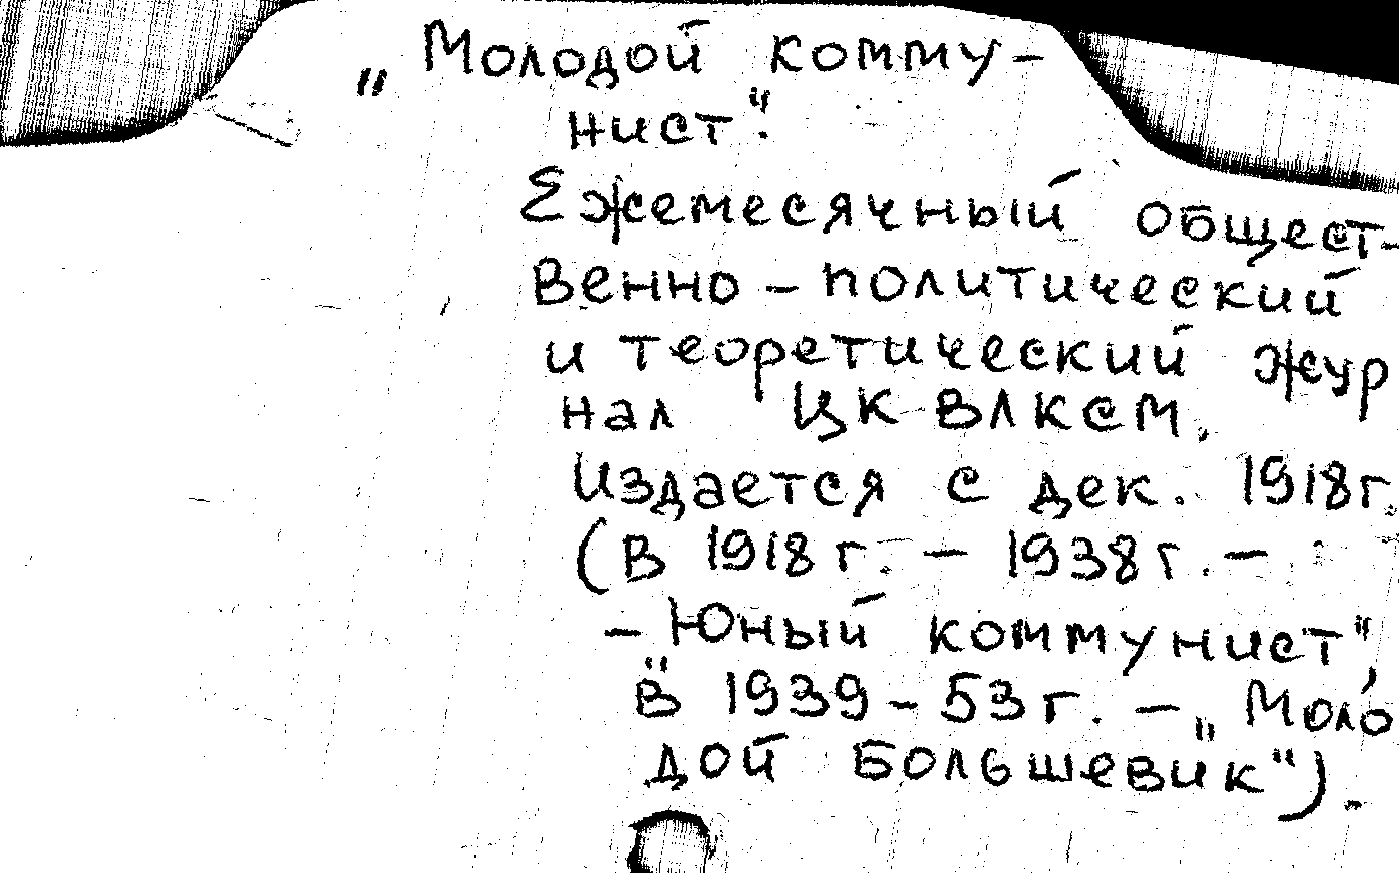 „Молодой комму-
нист".
Ежемесячный общест-
венно-политический
и теоретический жур
нал ЦК ВЛКСМ.
Издается с дек. 1918г.
(В 1918г. – 1938г. –
– „Юный коммунист",
В 1939-53г. – „Моло
дой большевик").